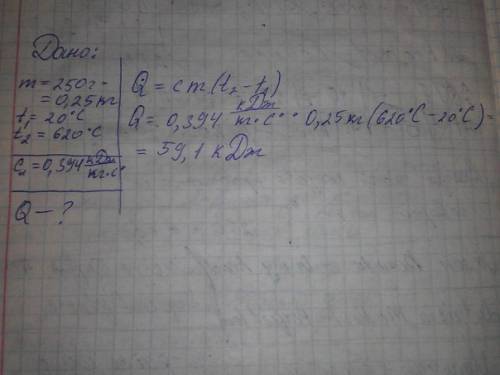 Дано:
m = 250 г =
= 0,25 кг
t₁ = 20°C
t₂ = 620°C
c = 0,394 кДж/кг·C°
Q — ?
Q = cm(t₂ - t₁)
Q = 0,394 кДж/кг·C° · 0,25 кг (620°C - 20°C) =
= 59,1 кДж